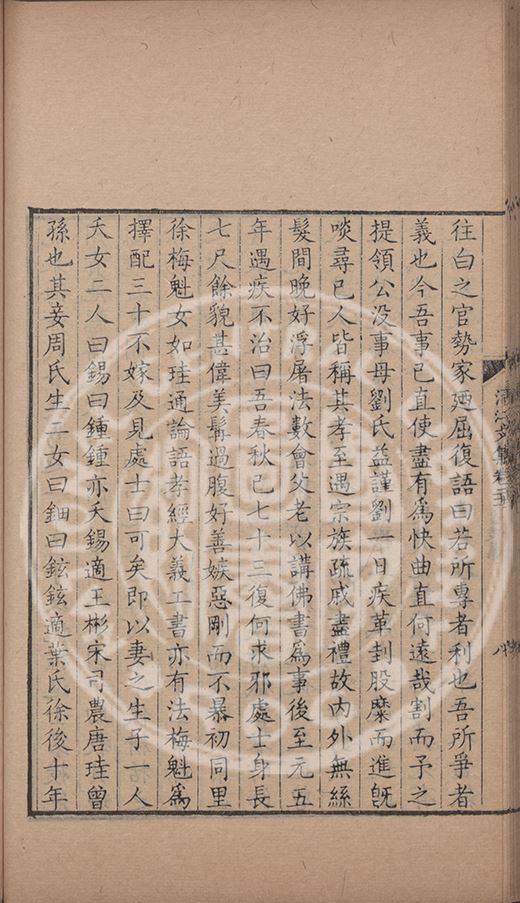 往白之官勢家廼屈復語曰若所專者利也吾所爭者
義也今吾事已直使盡有爲快曲直何遠哉割而予之
提領公没事母劉氏益謹劉一日疾革刲股糜而進旣
啖尋已人皆稱其孝至遇宗族疏戚盡禮故内外無絲
髮間晚好浮屠法數會父老以講佛書爲事後至元五
年遇疾不治曰吾春秋已七十三復何求邪處士身長
七尺餘貌甚偉美髯過腹好善嫉惡剛而不㬥初同里
徐梅魁女如珪通論語孝經大義工書亦有法梅魁爲
擇配三十不嫁及見處士曰可矣即以妻之生子一人
夭女二人曰錫曰鍾鍾亦夭錫適王彬宋司農唐珪曾
孫也其妾周氏生二女曰鈿曰鉉鉉適葉氏徐後十年